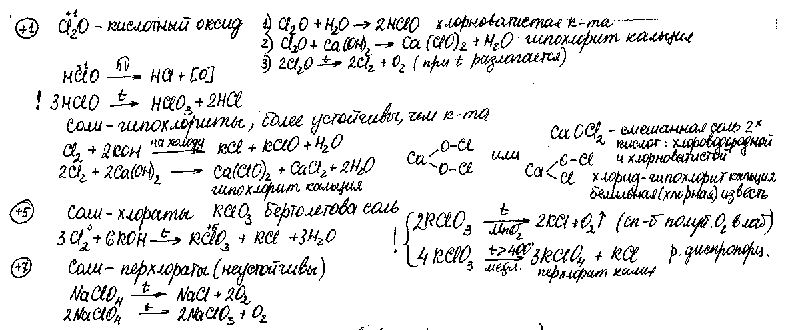 +1 Cl₂O - кислотный оксид 1) Cl₂O + H₂O → 2HClO хлорноватистая к-та
2) Cl₂O + Ca(OH)₂ → Ca(ClO)₂ + H₂O гипохлорит кальция
3) 2Cl₂O →t 2Cl₂ + O₂ (при t разлагается)
HClO →hν HCl + [O]
! 3HClO →t HClO₃ + 2HCl
Соли - гипохлориты, более устойчивы, чем к-та
Cl₂ + 2KOH →на холоду KCl + KClO + H₂O
2Cl₂ + 2Ca(OH)₂ → Ca(ClO)₂ + CaCl₂ + 2H₂O
гипохлорит кальция
Ca O-Cl O-Cl или Ca O-Cl Cl
CaOCl₂ - смешанная соль 2ˣ
кислот: хлороводородной
и хлорноватистой
хлорид-гипохлорит кальция
белильная (хлорная) известь
+5 Соли - хлораты KClO₃ бертолетова соль
3Cl₂⁰ + 6KOH →t KClO₃ + KCl + 3H₂O
! 2KClO₃ →t MnO₂ 2KCl + O₂↑ (сп-б получ. O₂ в лаб)
4KClO₃ →t>400° медл. 3KClO₄ + KCl р. диспропорц.
перхлорат калия
+7 Соли - перхлораты (неустойчивы)
NaClO₄ →t NaCl + 2O₂
2NaClO₄ →t 2NaClO₃ + O₂